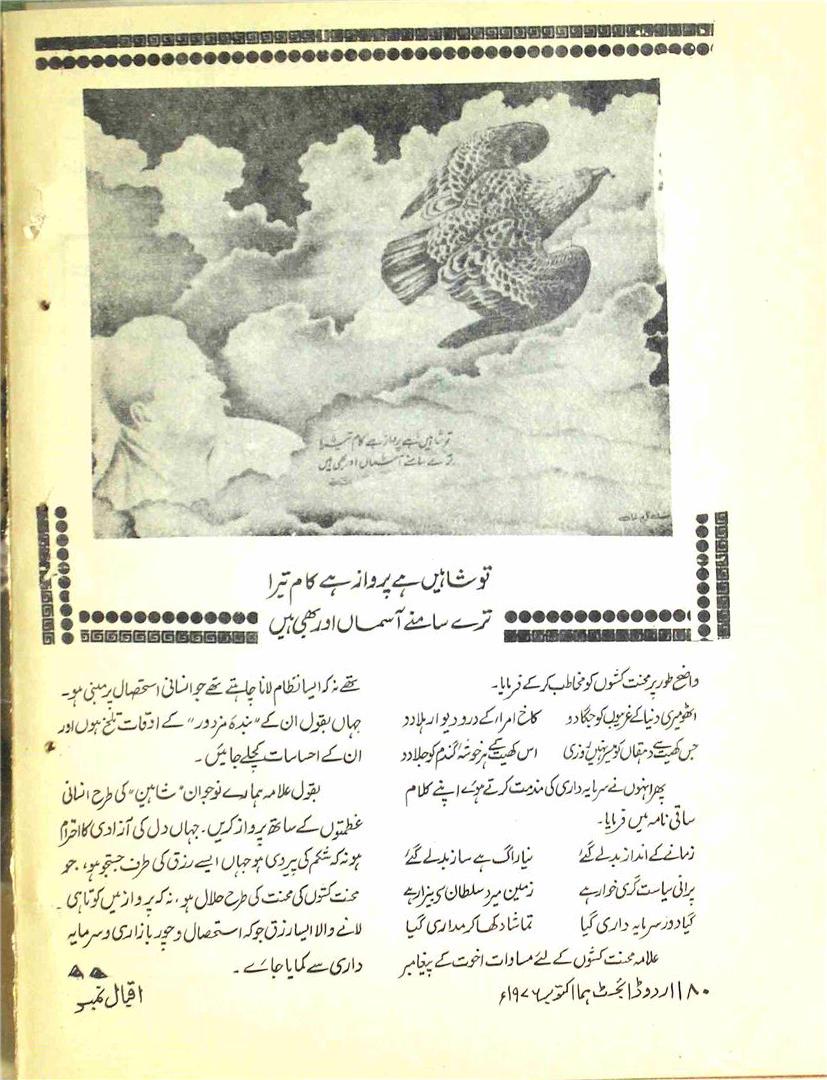 تو شاہیں ہے پرواز ہے کام تیرا
ترے سامنے آسماں اور بھی ہیں
تو شاہیں ہے پرواز ہے کام تیرا
ترے سامنے آسماں اور بھی ہیں
واضح طور پر محنت کشوں کو مخاطب کرکے فرمایا۔
اٹھو میری دنیا کے غریبوں کو جگا دو کاخ امراء کے در و دیوار ہلا دو
جس کھیت سے دہقاں کو میسر نہیں روزی اس کھیت کے ہر خوشۂ گندم کو جلا دو
پھر انہوں نے سرمایہ داری کی مذمت کرتے ہوئے اپنے کلام
ساقی نامہ میں فرمایا۔
زمانے کے انداز بدلے گئے نیا راگ ہے ساز بدلے گئے
پرانی سیاست گری خوار ہے زمین میر و سلطان سے بیزار ہے
گیا دور سرمایہ داری گیا تماشا دکھا کر مداری گیا
علامہ محنت کشوں کے لئے مساوات اخوت کے پیغامبر
تھے نہ کہ ایسا نظام لانا چاہتے تھے جو انسانی استحصال پر مبنی ہو۔
جہاں بقول ان کے "بندہ مزدور" کے اوقات تلخ ہوں اور
ان کے احساسات کچلے جائیں۔
بقول علامہ ہمارے نوجوان "شاہین" کی طرح انسانی
عظمتوں کے ساتھ پرواز کریں۔ جہاں دل کی آزادی کا احترام
ہو نہ کہ شکم کی پیروی ہو جہاں ایسے رزق کی طرف جستجو ہو، جو
محنت کشوں کی محنت کی طرح حلال ہو، نہ کہ پرواز میں کوتاہی۔
لانے والا ایسا رزق جو کہ استحصال و چور بازاری و سرمایہ
داری سے کمایا جائے۔
۱۸۰ اردو ڈائجسٹ ہما اکتوبر ۱۹۷۶ء
اقبال نمبر